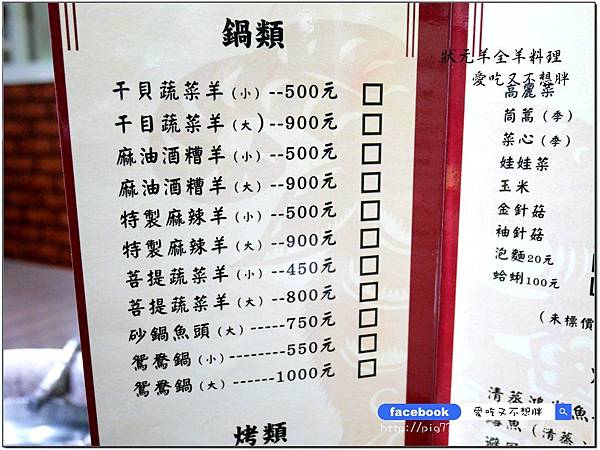 鍋類
干貝蔬菜羊(小)--500元
干目蔬菜羊(大)--900元
麻油酒糟羊(小)--500元
麻油酒糟羊(大)--900元
特製麻辣羊(小)--500元
特製麻辣羊(大)--900元
菩提蔬菜羊(小)--450元
菩提蔬菜羊(大)--800元
砂鍋魚頭(大)-----750元
鴛鴦鍋(小)--------550元
鴛鴦鍋(大)-------1000元
烤類
狀元羊全羊料理
愛吃又不想胖
高麗菜
茼萵(季)
菜心(季)
娃娃菜
玉米
金針菇
袖針菇
泡麵20元
蛤蜊100元
(未標價
清蒸
facebook 愛吃又不想胖